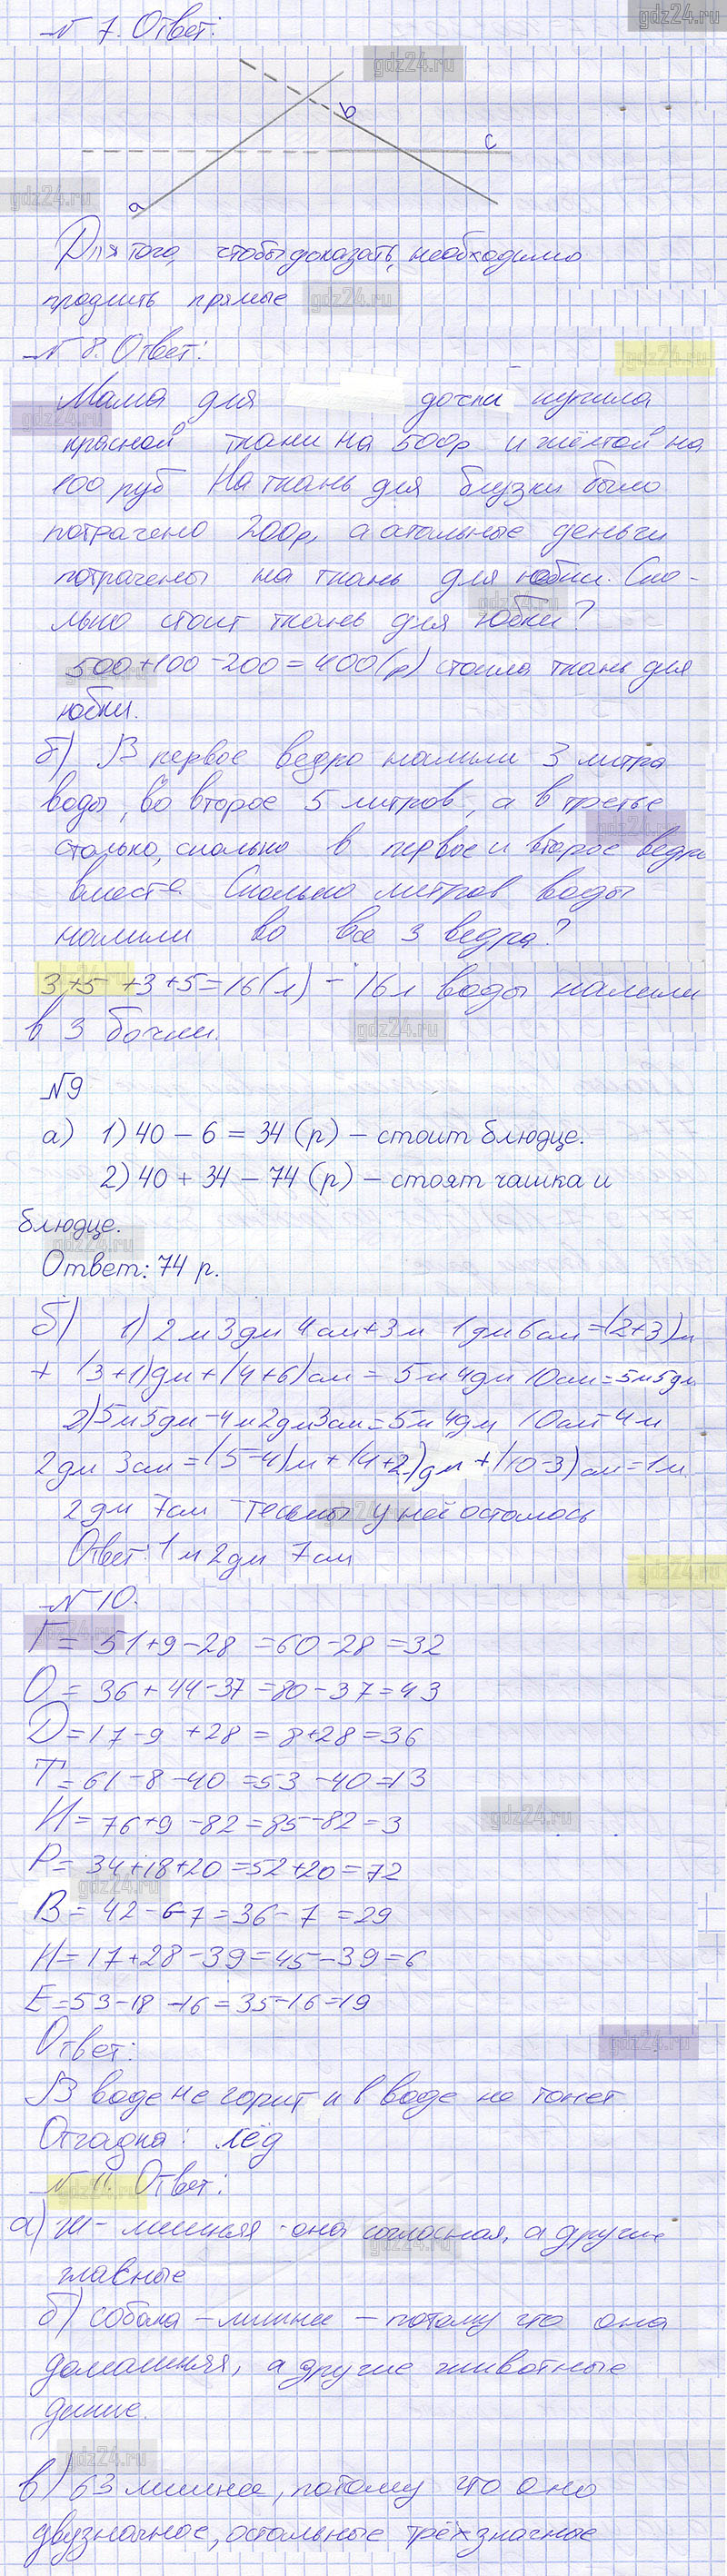 № 7. Ответ:
gdz24.ru
gdz24.ru
b
c
gdz24.ru
a
Для того, чтобы доказать, необходимо
продлить прямые
gdz24.ru
№ 8. Ответ:
gdz24.ru
Мама для дочки купила
gdz24.ru
красной ткани на 500р и жёлтой на
100 руб На ткань для блузки было
потрачено 200р, а остальные деньги
потрачены на ткань для юбки. Ско-
gdz24.ru
лько стоит ткань для юбки?
500+100-200=400(р) стоила ткань для
юбки.
б) В первое ведро налили 3 литра
воды, во второе 5 литров, а в третье
gdz24.ru
столько, сколько в первое и второе ведра
вместе Сколько литров воды
налили во все 3 ведра?
3+5+3+5=16(л) - 16л воды налили
в 3 бочки.
gdz24.ru
№9
а) 1) 40 – 6 = 34 (р) – стоит блюдце.
2) 40 + 34 – 74 (р) – стоят чашка и
блюдце.
gdz24.ru
Ответ: 74 р.
б) 1) 2м 3дм 4см+3м 1дм6см=(2+3)м
+ (3+1)дм+(4+6)см = 5м 4дм 10см=5м5дм
2)5м5дм-4м2дм3см=5м4дм 10см-4м
2дм 3см=(5-4)м+(4+2)дм+(10-3)см=1м
2дм 7см тесьмы у неё осталось
gdz24.ru
Ответ: 1м 2дм 7см
gdz24.ru
№ 10.
gdz24.ru
Г= 51+9-28 =60-28=32
О= 36+44-37=80-37=43
Д=17-9 +28 = 8+28=36
Т=61-8-40=53-40=13
И=76+9-82=85-82=3
gdz24.ru
Р= 34+18+20=52+20=72
gdz24.ru
В= 42-6-7=36-7=29
Н=17+28-39=45-39=6
Е=53-18-16=35-16=19
Ответ:
gdz24.ru
В воде не горит и в воде не тонет
Отгадка: лёд
№ 11. Ответ:
gdz24.ru
а) ш- лишняя -она согласная, а другие
gdz24.ru
гласные
б) собака – лишнее – потому что она
домашняя, а другие животные
дикие.
gdz24.ru
в) 63 лишнее, потому что оно
двузначное, остальные трёхзначные